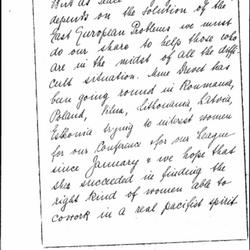 depends on the solution of the
East European Problems we must
do our share to help those who
are in the midst of all the diffi
cult situation. Mme Drevet has
been going round in Roumania,
Poland, Vilna, Lithouania, Latvia,
Esthonia trying to interest women
for our Conference & for our League
since January & we hope that
she succeeded in finding the
right kind of women able to
cowork in a real pacifist spirit